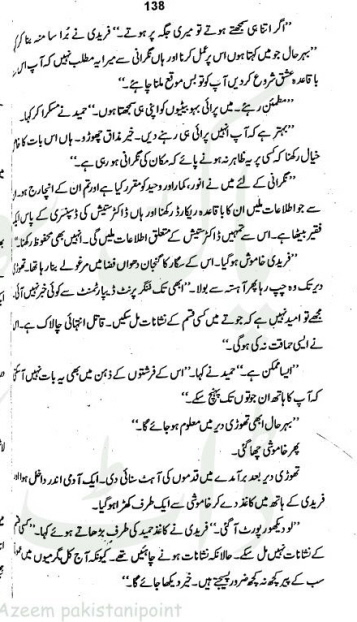 138
’’اگر اتنا ہی سمجھتے ہوتے تو میری جگہ پر ہوتے۔‘‘ فریدی نے بُرا سا منہ بنا کر کہا۔
’’بہر حال جو میں کہتا ہوں اس پر عمل کرنا اور ہاں نگرانی سے میرا یہ مطلب نہیں کہ آپ اس
باقاعدہ عشق شروع کر دیں آپ کو تو بس موقع ملنا چاہئے۔‘‘
’’مطمئن رہئے۔ میں پرائی بہو بیٹیوں کو اپنی ہی سمجھتا ہوں۔‘‘ حمید نے مسکرا کر کہا۔
’’بہتر ہے کہ آپ انہیں پرائی ہی رہنے دیں۔ خیر مذاق چھوڑو۔ ہاں اس بات کا خاص
خیال رکھنا کہ کسی پر یہ ظاہر نہ ہونے پائے کہ مکان کی نگرانی ہو رہی ہے۔‘‘
’’نگرانی کے لئے میں نے انور، کمار اور وحید کو مقرر کیا ہے اور تم ان کے انچارج ہو۔
سے جو اطلاعات ملیں ان کا باقاعدہ ریکارڈ رکھنا اور ہاں ڈاکٹر ستیش کی ڈسپنسری کے پاس ایک
فقیر بیٹھا ہے۔ اس سے تمہیں ڈاکٹر ستیش کے متعلق اطلاعات ملیں گی۔ انہیں بھی محفوظ رکھنا۔‘‘
فریدی خاموش ہو گیا۔ اس کے سگار کا گنجان دھواں فضا میں مرغولے بنا رہا تھا۔ تھوڑی
دیر تک وہ چپ رہا پھر آہستہ سے بولا۔ ’’ابھی تک فنگر پرنٹ ڈیپارٹمنٹ سے کوئی خبر نہیں آئی۔
مجھے تو امید نہیں ہے کہ جوتے میں کسی قسم کے نشانات مل سکیں۔ قاتل انتہائی چالاک ہے۔ اس
نے ایسی حماقت نہ کی ہوگی۔‘‘
’’ایسا ممکن ہے۔‘‘ حمید نے کہا۔ ’’اس کے فرشتوں کے ذہن میں بھی یہ بات نہیں آ سکتی
کہ آپ کا ہاتھ ان جوتوں تک پہنچ سکے۔‘‘
’’بہر حال ابھی تھوڑی دیر میں معلوم ہو جائے گا۔‘‘
پھر خاموشی چھا گئی۔
تھوڑی دیر بعد برآمدے میں قدموں کی آہٹ سنائی دی۔ ایک آدمی اندر داخل ہوا اور
فریدی کے ہاتھ میں کاغذ دے کر خاموشی سے ایک طرف کھڑا ہو گیا۔
’’لو دیکھو رپورٹ آ گئی۔‘‘ فریدی نے کاغذ حمید کی طرف بڑھاتے ہوئے کہا۔ ’’کسی قسم
کے نشانات نہیں مل سکے۔ حالانکہ نشانات ہونے چاہئیں تھے۔ کیونکہ آج کل گرمیوں میں
سب کے پیر کچھ نہ کچھ ضرور پسیجتے ہیں۔ خیر دیکھا جائے گا۔‘‘
Azeem pakistanipoint